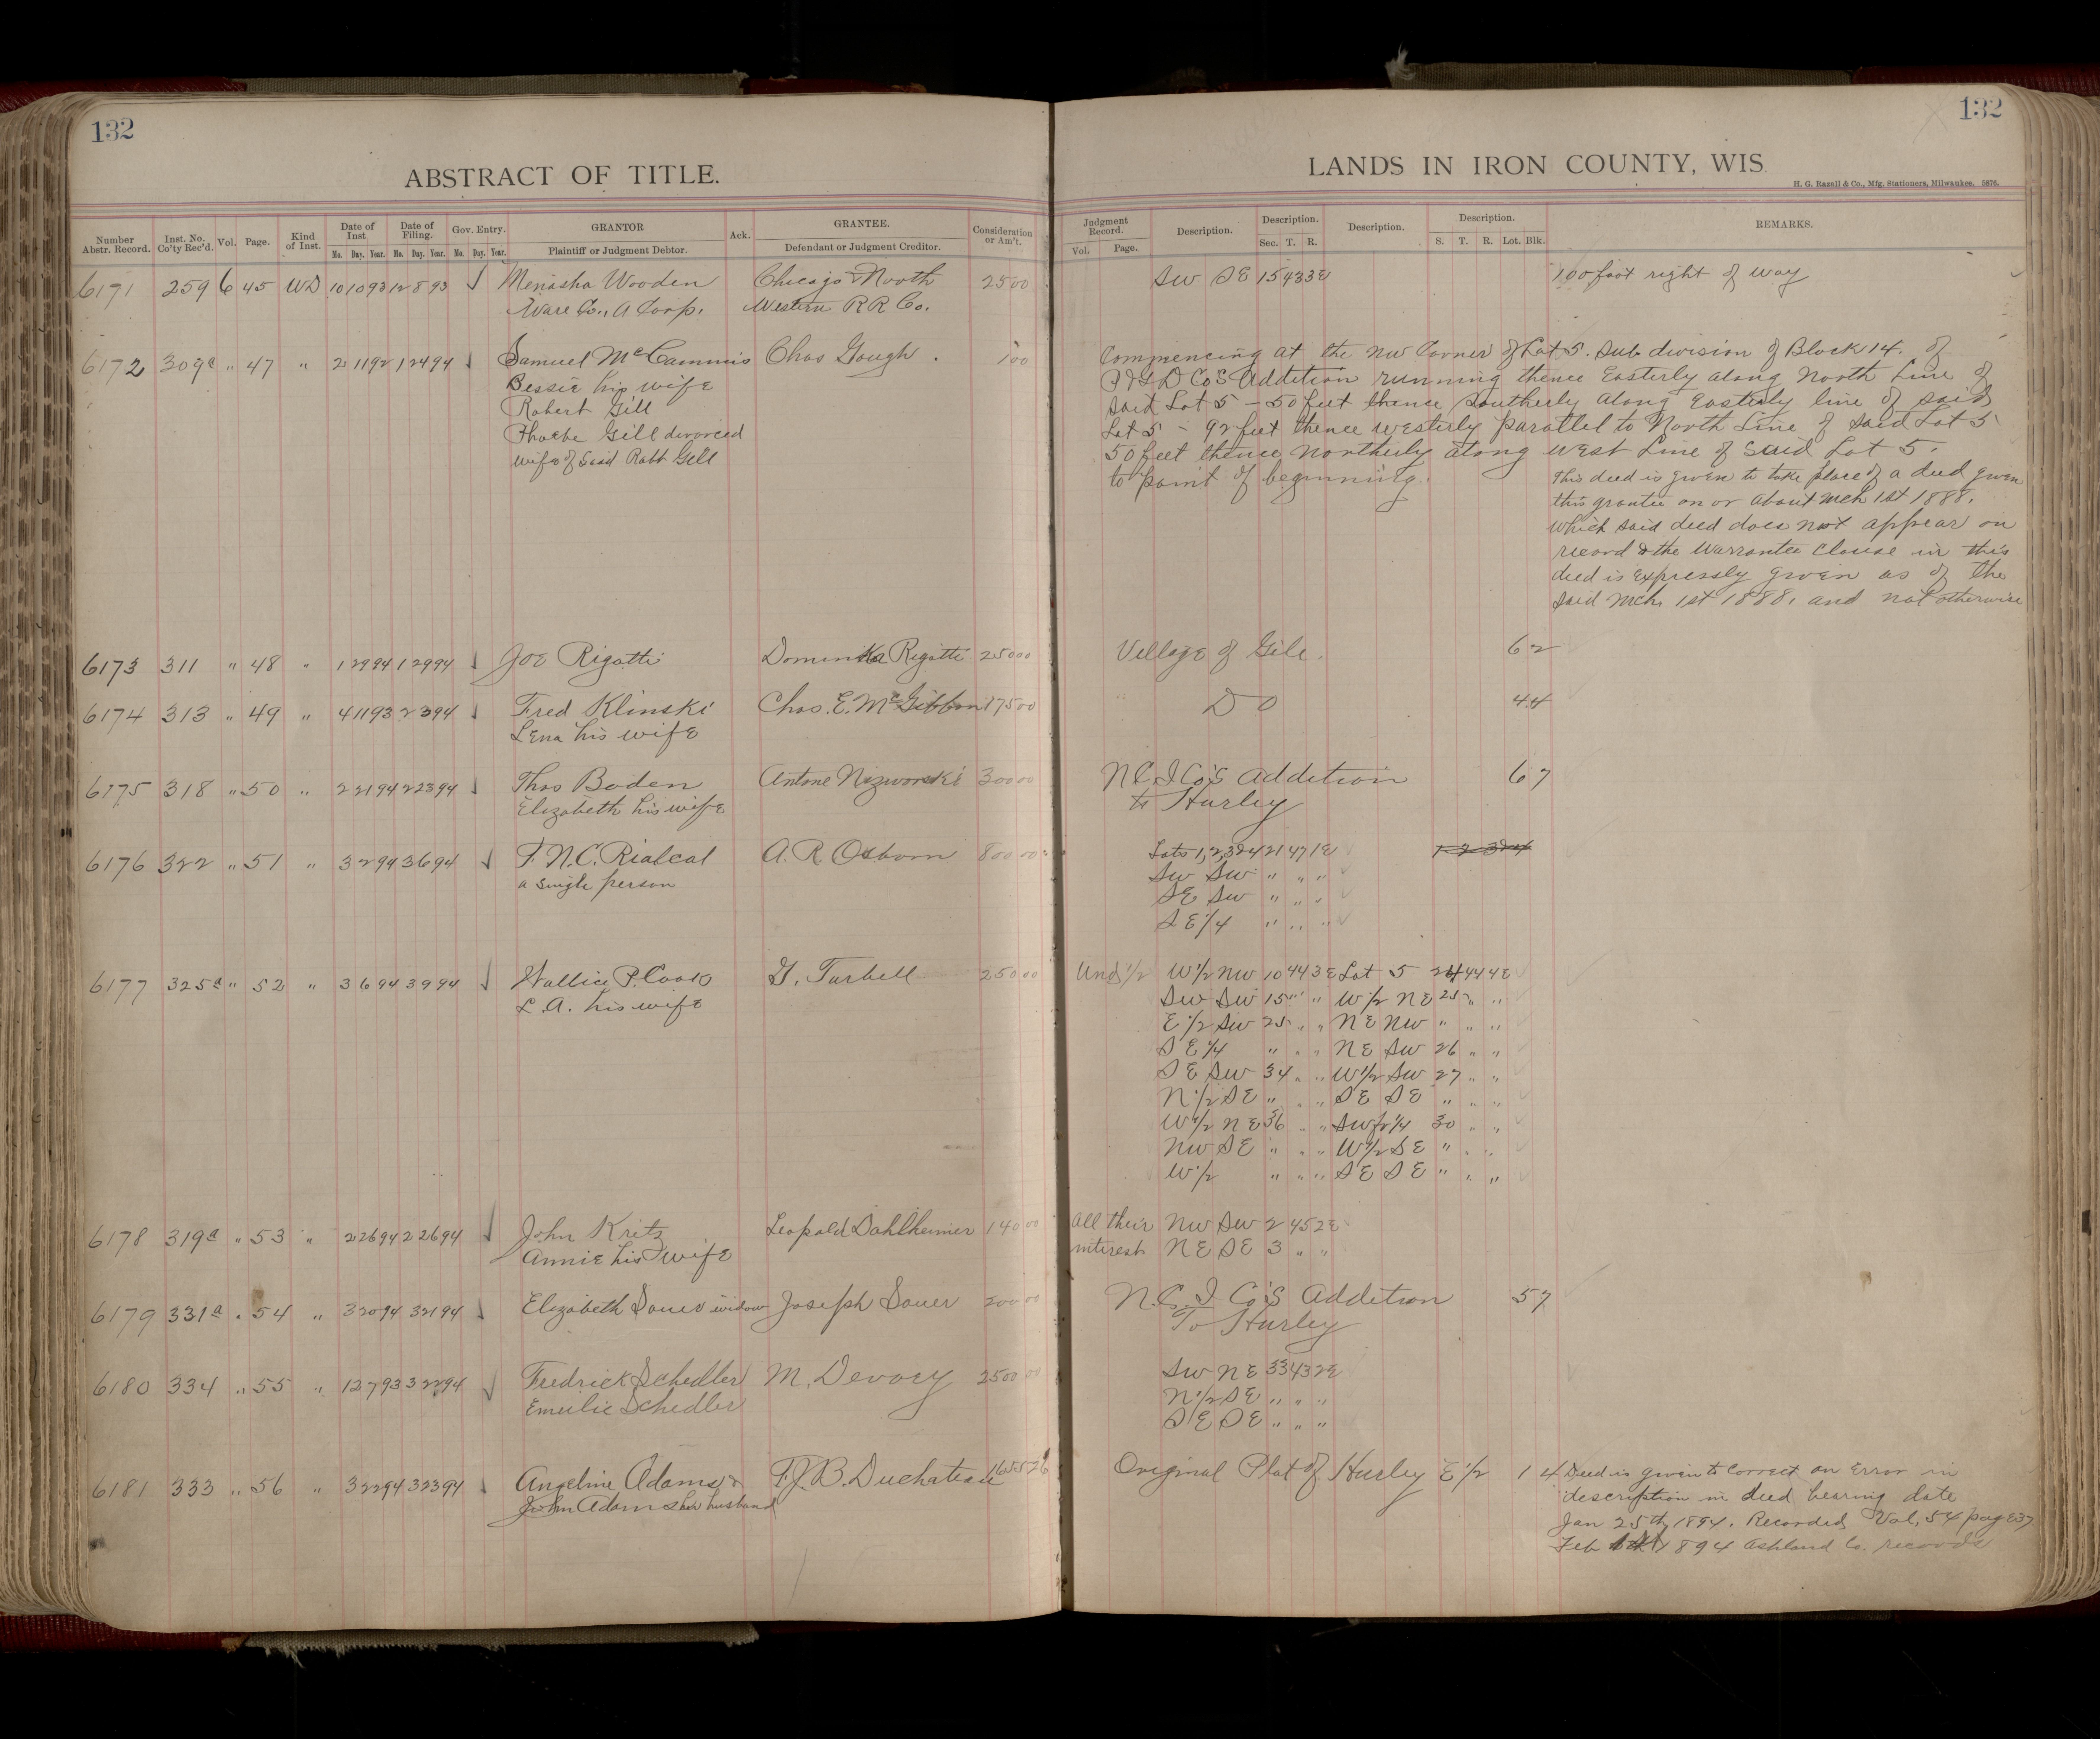 132
ABSTRACT OF TITLE.
Number Abstr. Record. Inst. No. Co'ty Rec'd. Vol. Page. Kind of Inst. Date of Inst Mo. Day. Year. Date of Filing. Mo. Day. Year. Gov. Entry. Mo. Day. Year. GRANTOR Plaintiff or Judgment Debtor. Ack. GRANTEE. Defendant or Judgment Creditor. Consideration or Am't.
6171 259 6 45 WD 10 10 93 12 8 93 Menasha Wooden Chicago & North 25 00
Ware Co., A Corp. Western RR Co.
6172 309a " 47 " 2 11 92 1 24 94 Samuel McCammis Chas Gough. 1 00
Bessie his wife
Robert Gill
Phoebe Gill divorced
wife of Said Robt Gill
6173 311 " 48 " 1 29 94 1 29 94 Joe Rigatti Rigatti 250 00
6174 313 " 49 " 4 11 93 2 3 94 Fred Klinski Chas. E. McGibbon 175 00
Lena his wife
6175 318 " 50 " 2 21 94 2 23 94 Thos Boden Antone 300 00
Elizabeth his wife
6176 322 " 51 " 3 2 94 3 6 94 F. N. C. A. R. Osborn 800 00
a single person
6177 325a " 52 " 3 6 94 3 9 94 P. Cook G. Tarbell 250 00
L. A. his wife
6178 319a " 53 " 2 26 94 2 26 94 John Kritz Leopold Dahlheimer 140 00
Annie his wife
6179 331a " 54 " 3 20 94 3 21 94 Elizabeth Sauer widow Joseph Sauer 200 00
6180 334 " 55 " 12 7 93 3 22 94 Fredrick Schedler M. Devoey 2500 00
Emilie Schedler
6181 333 " 56 " 3 22 94 3 23 94 Angeline Adams & F. J. B. Duchateau 1655 26
John Adams her husband
132
LANDS IN IRON COUNTY, WIS.
H. G. Razall & Co., Mfg. Stationers, Milwaukee. 5876.
Judgment Record. Vol. Page. Description. Description. Sec. T. R. Description. Description. S. T. R. Lot. Blk. REMARKS.
SW SE 15 43 3E 100 foot right of way
Commencing at the NW Corner of Lot 5. Sub division of Block 14. of
Co's Addition running thence Easterly along North Line of
said Lot 5 - 50 feet thence Southerly along Easterly line of said
Lot 5 - 92 feet thence westerly parallel to North Line of said Lot 5
50 feet thence Northerly along West Line of Said Lot 5.
to point of beginning.
This deed is given to take place of a deed given
this grantee on or about Mch 1st 1888.
which said deed does not appear on
record & the Warrantee Clause in this
deed is Expressly given as of the
said Mch. 1st 1888, and not otherwise
Village of Gile. 6 2
" DO 4 4
N. C. I Co's Addition 6 7
to Hurley
Lots 1, 2, 3 & 4 21 47 1E 1 2 3 & 4
SW SW " " "
SE SW " " "
SE 1/4 " " "
Und 1/2 W 1/2 NW 10 44 3E Lot 5 24 44 4E
SW SW 15 " " W 1/2 NE 25 " "
E 1/2 SW 25 " " NE NW " " "
SE 1/4 " " " NE SW 26 " "
SE SW 34 " " W 1/2 SW 27 " "
N 1/2 SE " " " SE SE " " "
W 1/2 NE 36 " " SW fr 1/4 30 " "
NW SE " " " W 1/2 SE " " "
W 1/2 " " " SE SE " " "
All their NW SW 2 45 2E
interest NE SE 3 " "
N. C. I Co's Addition 5 7
To Hurley
SW NE 33 43 2E
N 1/2 SE " " "
SE SE " " "
Original Plat of Hurley E 1/2 1 4 Deed is given to Correct an Error in
description in deed bearing date
Jan 25th, 1894. Recorded Vol. 54 page 37
Feb 1894 Ashland Co. records